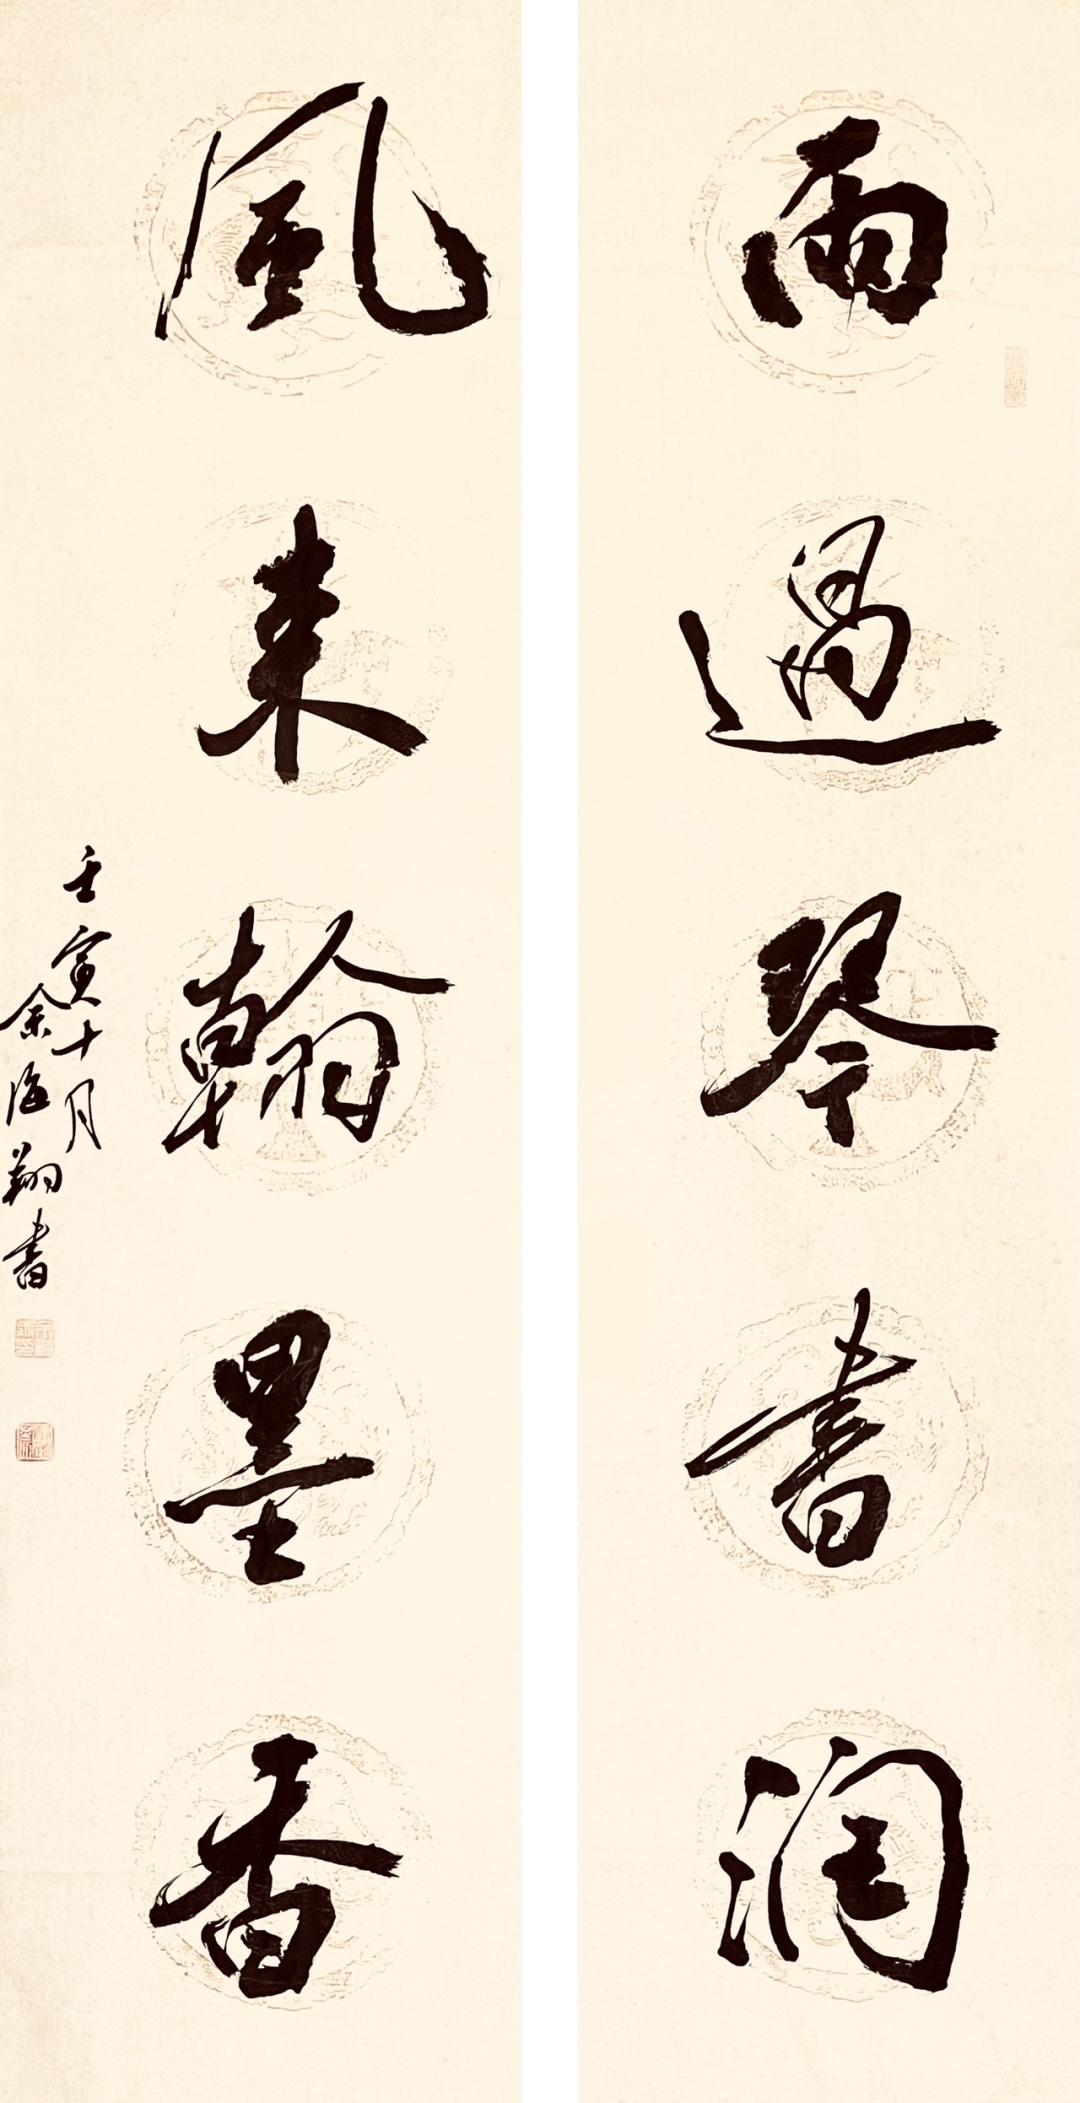 雨過琴書潤
風来翰墨香
壬寅十月
余海翔書